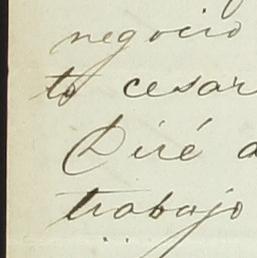 negocio
to cesar
Diré a
trabajo